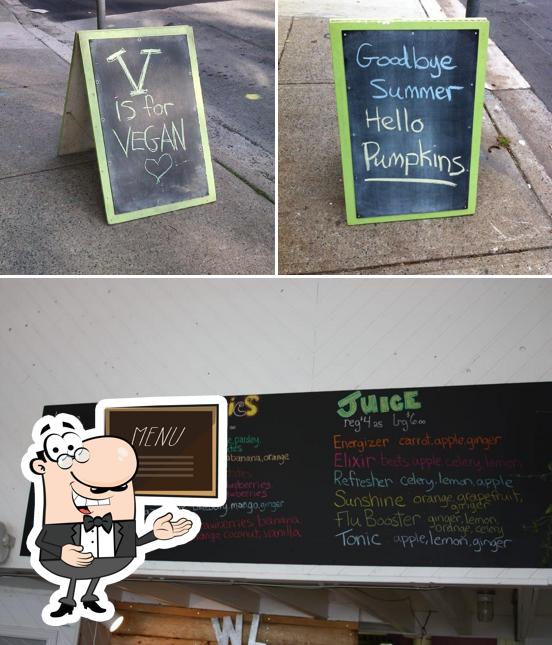 V
is for
VEGAN
Goodbye
Summer
Hello
Pumpkins
MENU
parsley,
banana, orange
blueberry, mango, ginger
strawberries banana
mango, coconut, vanilla
JUICE
reg $4.25 lrg 6.00
Energizer carrot, apple, ginger
Elixir beets apple, celery, lemon
Refresher celery, lemon, apple
Sunshine orange, grapefruit,
ginger
Flu Booster ginger, lemon,
orange, celery
Tonic apple, lemon, ginger
WL